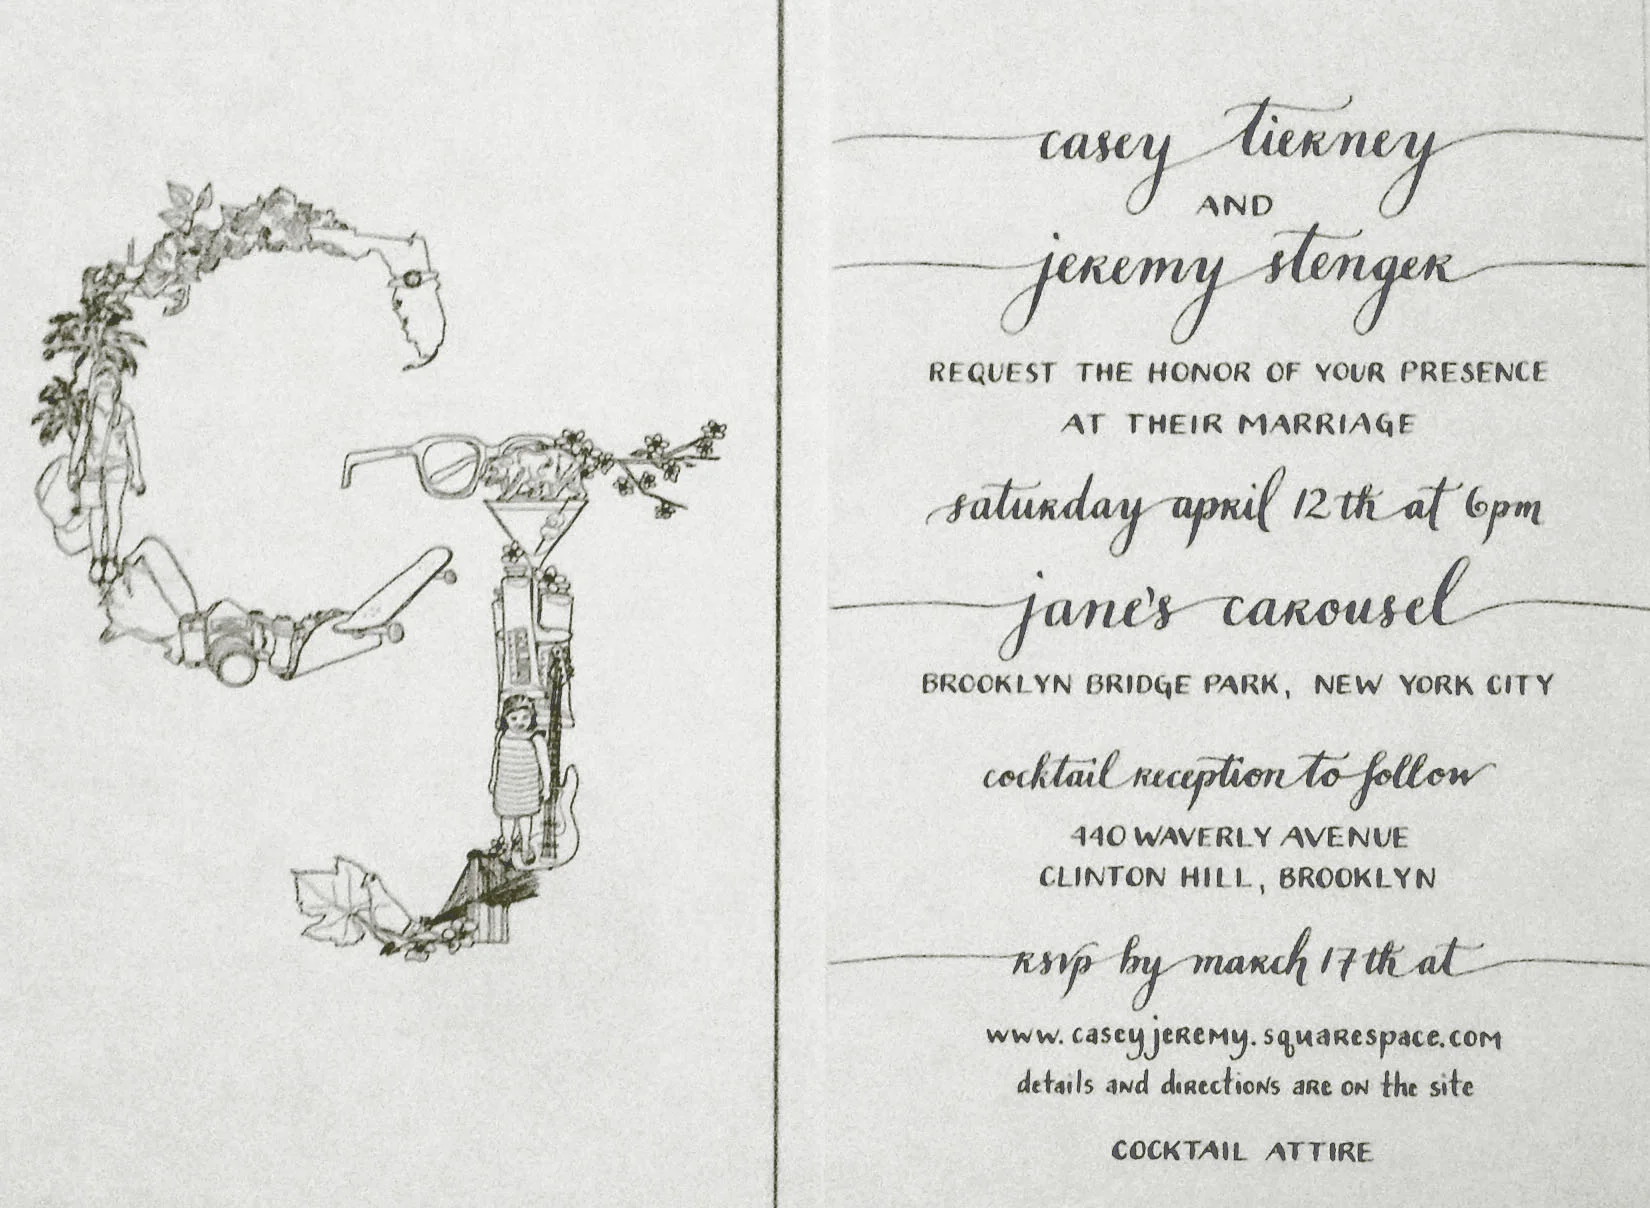 casey tierney
AND
jeremy stenger
REQUEST THE HONOR OF YOUR PRESENCE
AT THEIR MARRIAGE
saturday april 12th at 6pm
jane's carousel
BROOKLYN BRIDGE PARK, NEW YORK CITY
cocktail reception to follow
440 WAVERLY AVENUE
CLINTON HILL, BROOKLYN
rsvp by march 17th at
www.caseyjeremy.squarespace.com
details and directions are on the site
COCKTAIL ATTIRE